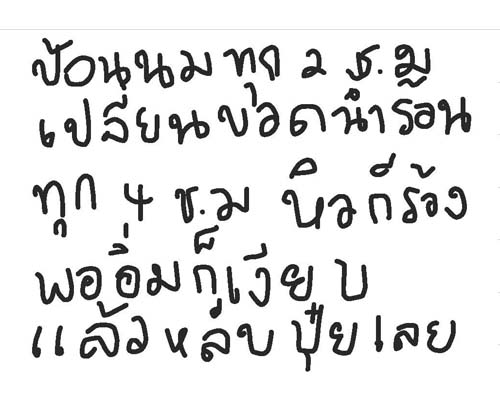 ป้อนนม ทุก 2 ช.ม
เปลี่ยนขวดน้ำร้อน
ทุก 4 ช.ม หิวก็ร้อง
พออิ่มก็เงียบ
แล้วหลับปุ๋ยเลย